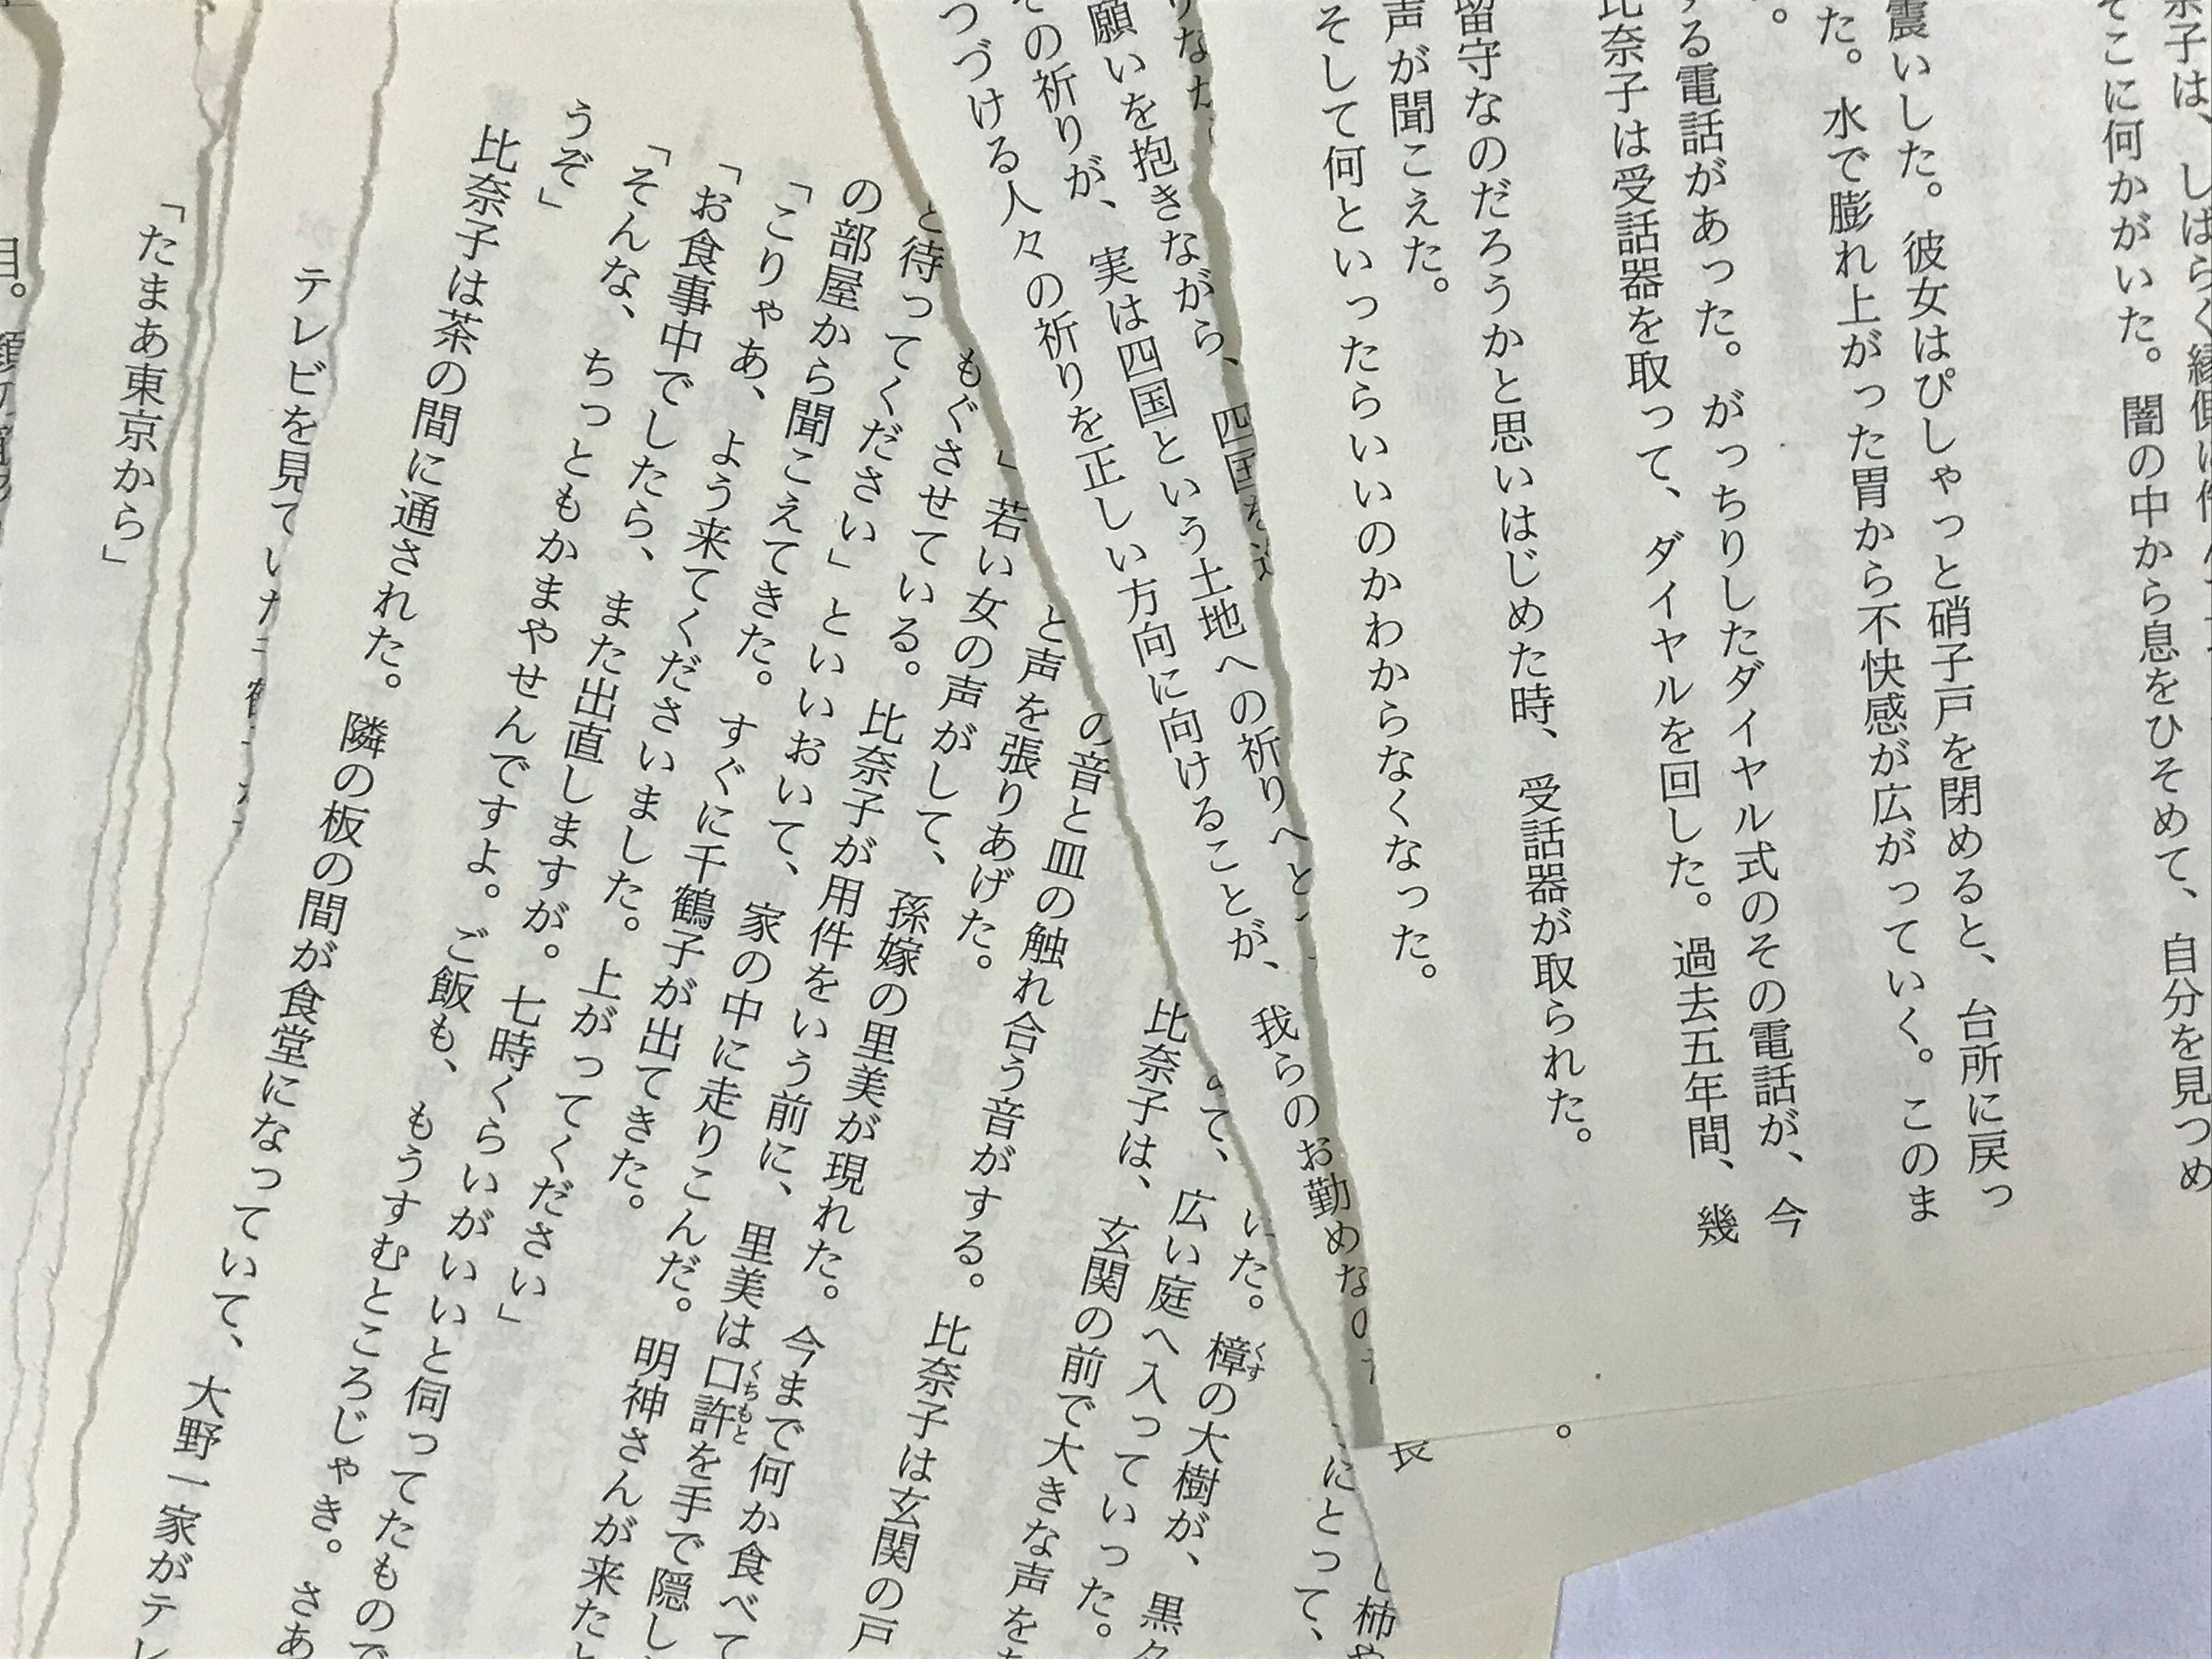 奈子は、しばらく縁側に
そこに何かがいた。闇の中から息をひそめて、自分を見つめ
震いした。彼女はぴしゃっと硝子戸を閉めると、台所に戻っ
た。水で膨れ上がった胃から不快感が広がっていく。このま
。
する電話があった。がっちりしたダイヤル式のその電話が、今
比奈子は受話器を取って、ダイヤルを回した。過去五年間、幾
留守なのだろうかと思いはじめた時、受話器が取られた。
声が聞こえた。
そして何といったらいいのかわからなくなった。
。
長
りな
願いを抱きながら、四国を
その祈りが、実は四国という土地への祈りへと
つづける人々の祈りを正しい方向に向けることが、我らのお勤めなの
にとって、
し柿や
いた。樟の大樹が、黒々
くす
て、広い庭へ入っていった。
比奈子は、玄関の前で大きな声を
の音と皿の触れ合う音がする。比奈子は玄関の戸
と声を張りあげた。
」若い女の声がして、孫嫁の里美が現れた。今まで何か食べて
もぐさせている。比奈子が用件をいう前に、里美は口許を手で隠し
くちもと
と待ってください」といいおいて、家の中に走りこんだ。明神さんが来たと
の部屋から聞こえてきた。すぐに千鶴子が出てきた。
「こりゃあ、よう来てくださいました。上がってください」
「お食事中でしたら、また出直しますが。七時くらいがいいと伺ってたもので
「そんな、ちっともかまやせんですよ。ご飯も、もうすむところじゃき。さあ
うぞ」
比奈子は茶の間に通された。隣の板の間が食堂になっていて、大野一家がテレ
テレビを見ていた
「たまあ東京から」
目。